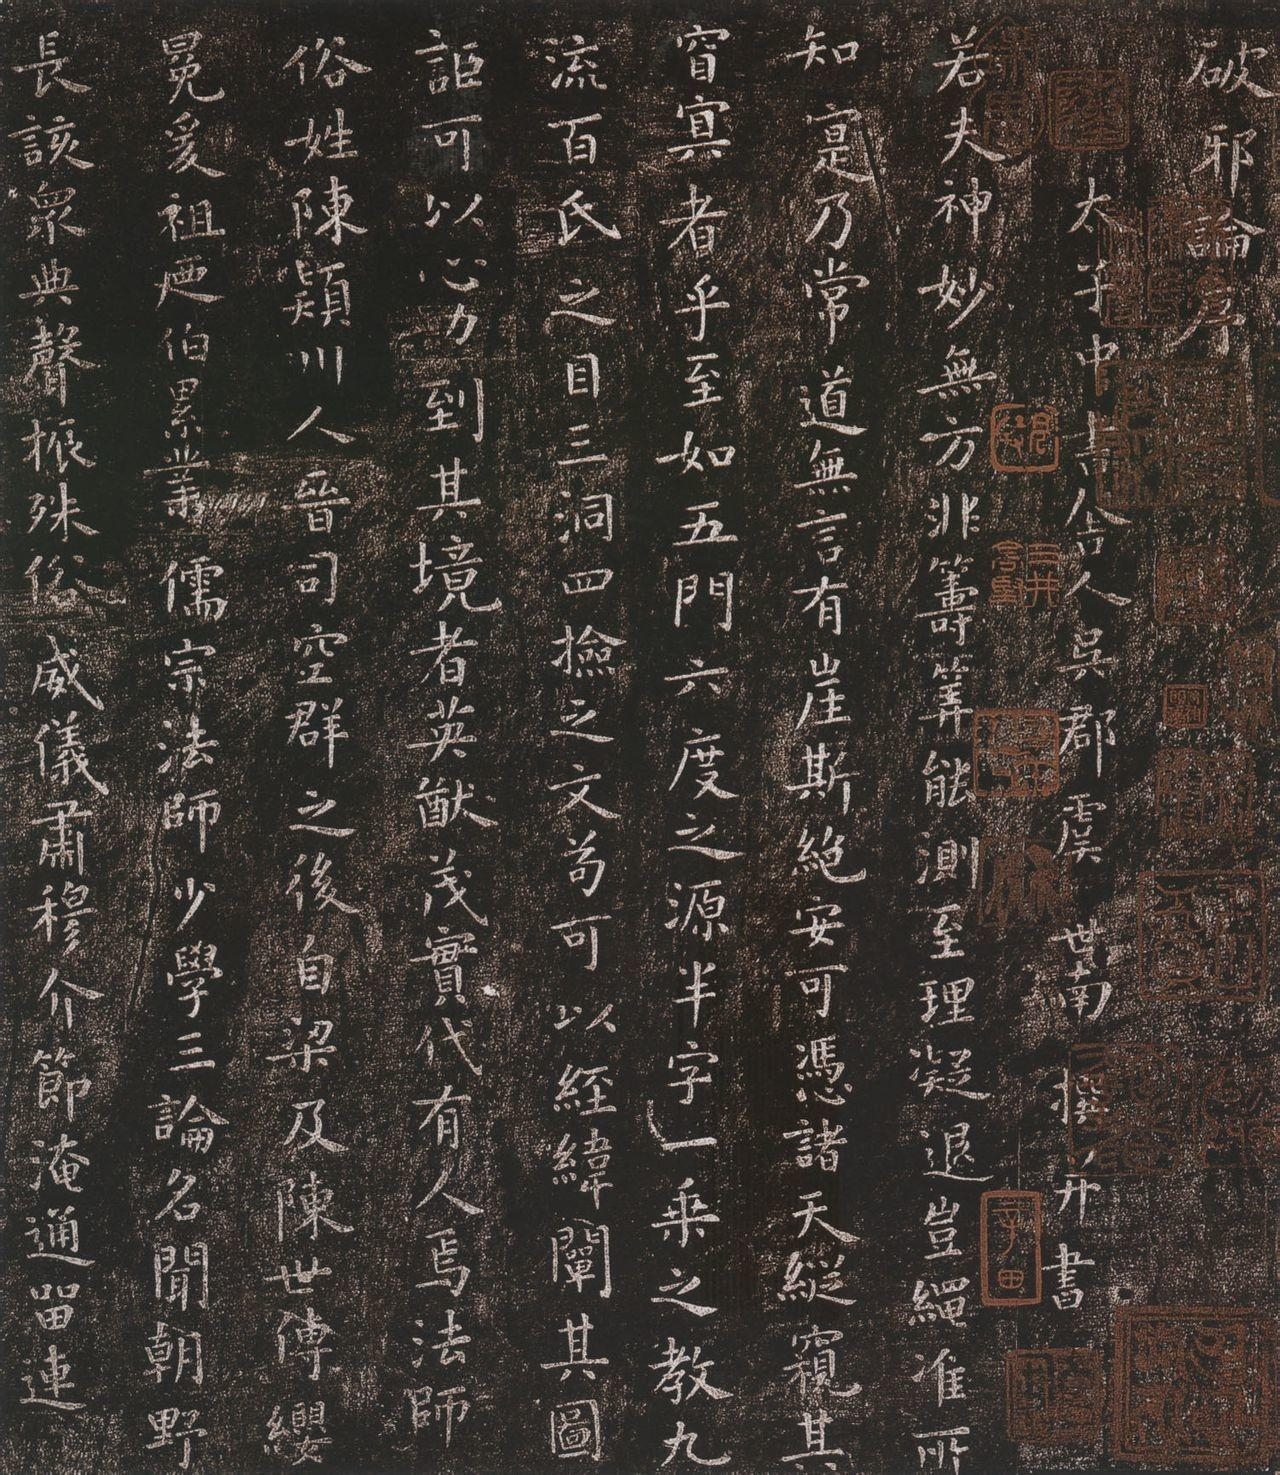 破邪論序
太子中書舍人吳郡虞世南撰并書
若夫神妙無方非籌筭能測至理凝退豈繩准所
知寔乃常道無言有崖斯絶安可憑諸天縱窺其
窅寘者乎至如五門六度之源半字一乘之教九
流百氏之目三洞四撿之文苟可以經緯闡其圖
詎可以心力到其境者英猷茂實代有人焉法師
俗姓陳潁川人晉司空群之後自梁及陳世傳纓
冕爰祖迊伯累業儒宗法師少學三論名聞朝野
長該衆典聲振殊俗威儀肅穆介節淹通留連